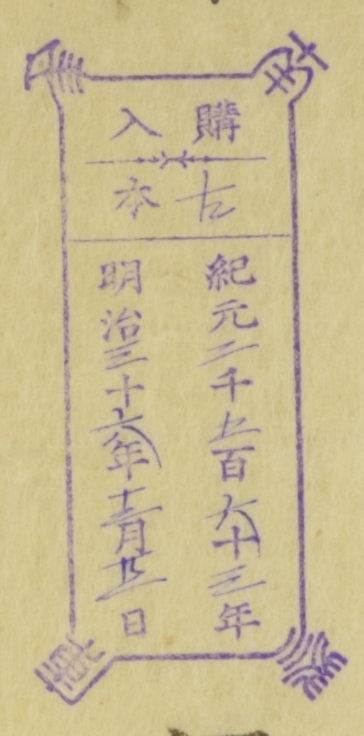 購入
古本
紀元二千五百六十三年
明治三十六年十二月廿五日